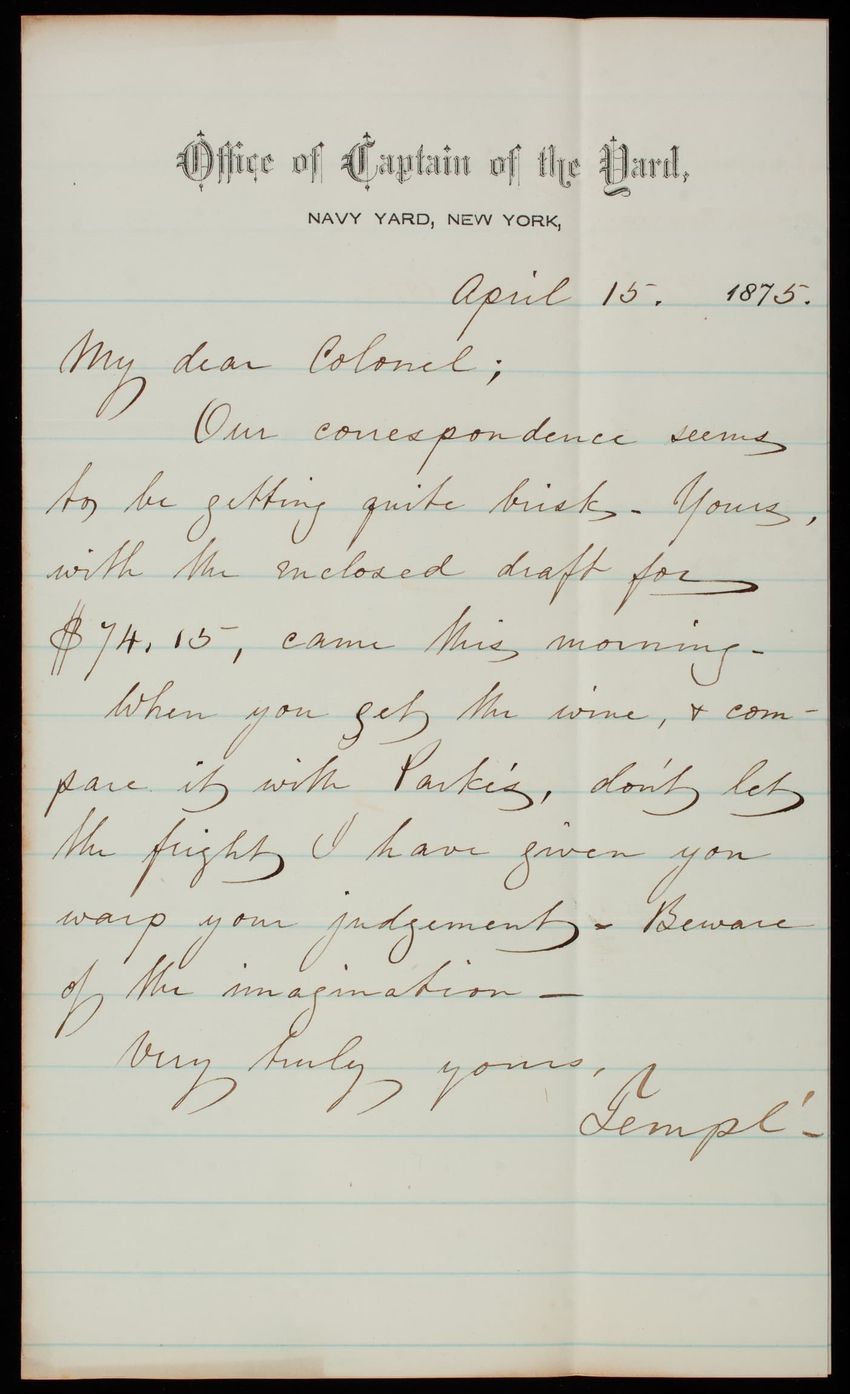 Office of Captain of the Yard,
NAVY YARD, NEW YORK,
April 15. 1875.
My dear Colonel;
Our correspondence seems
to be getting quite brisk - Yours,
with the enclosed draft for
$74.15, came this morning -
When you get the wine, & com-
pare it with Parke's, don't let
the fright I have given you
warp your judgement - Beware
of the imagination -
Very truly yours,
Templ' -